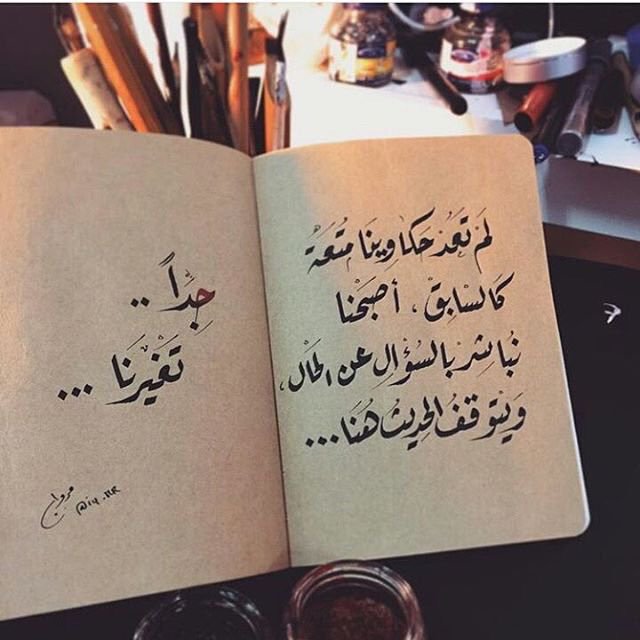 لَمْ تَعُدْ حَكاوِينَا مُتعَةً
كَالسَابِقْ، أصبَحْنا
نُبَاشِرْ بالسُؤالِ عن الحَالْ،
وَيتوقفُ الحَدِيثُ هُنَا...
جِدَّاً..
تَغَيرْنَا...
مروان
@iq.RR